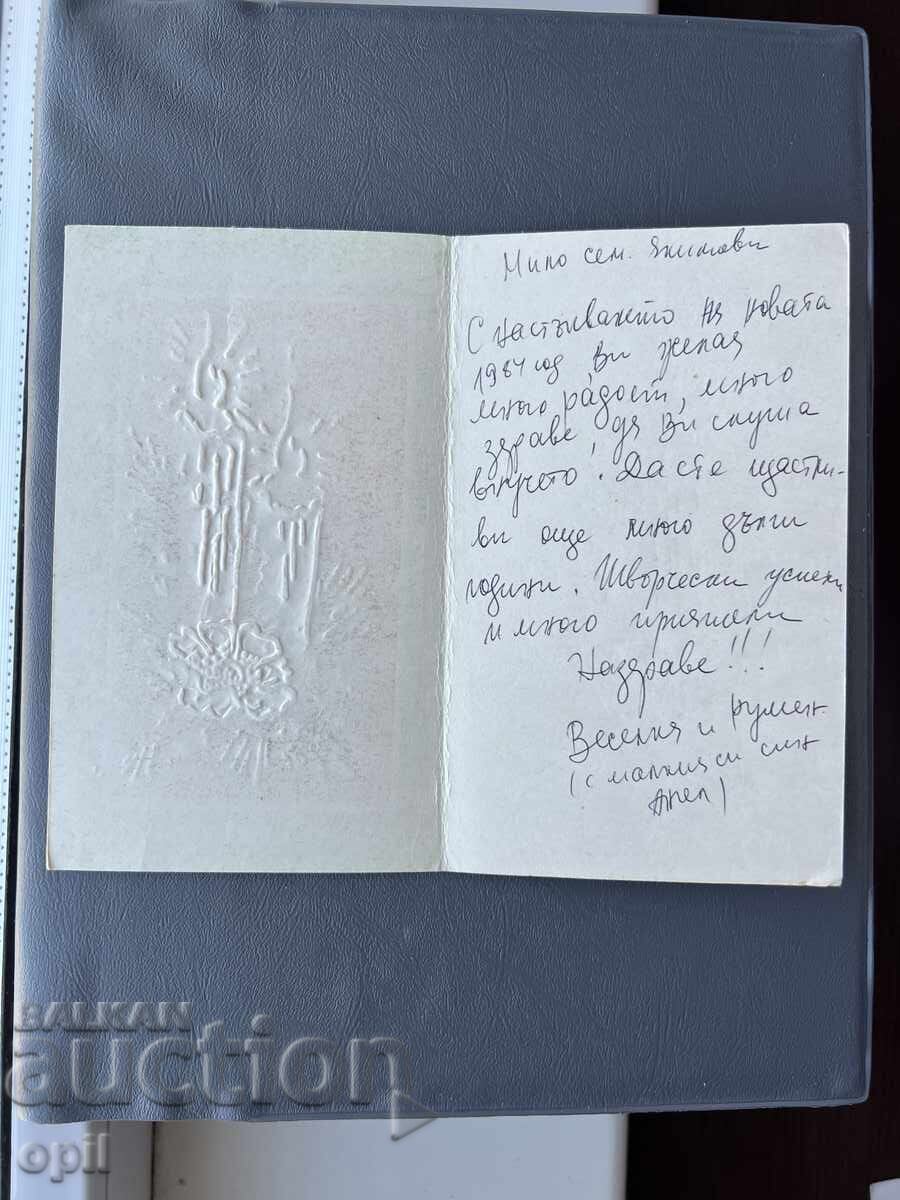 Мило сем. Якимови
С настъпването на новата
1984 год Ви желая
много радост, много
здраве, да Ви слуша
внучето! Да сте щастли-
ви още много дълги
години. Творчески успехи
и много приятели
Наздраве!!!
Веселия и Румен
(с малкия си син
Ангел)
BALKAN
auction
opil